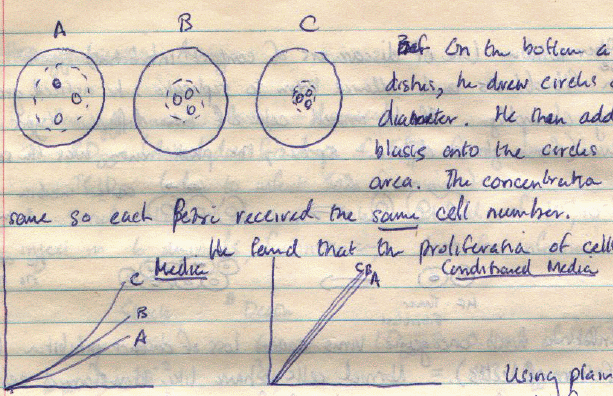 A B C
On the bottom a
dishes, he drew circles
diameter. He then add
blasts onto the circles
area. The concentratia
same so each Petri received the same cell number.
He found that the proliferatia of cell
C Media CB Conditioned Media
B A
A
Using plain